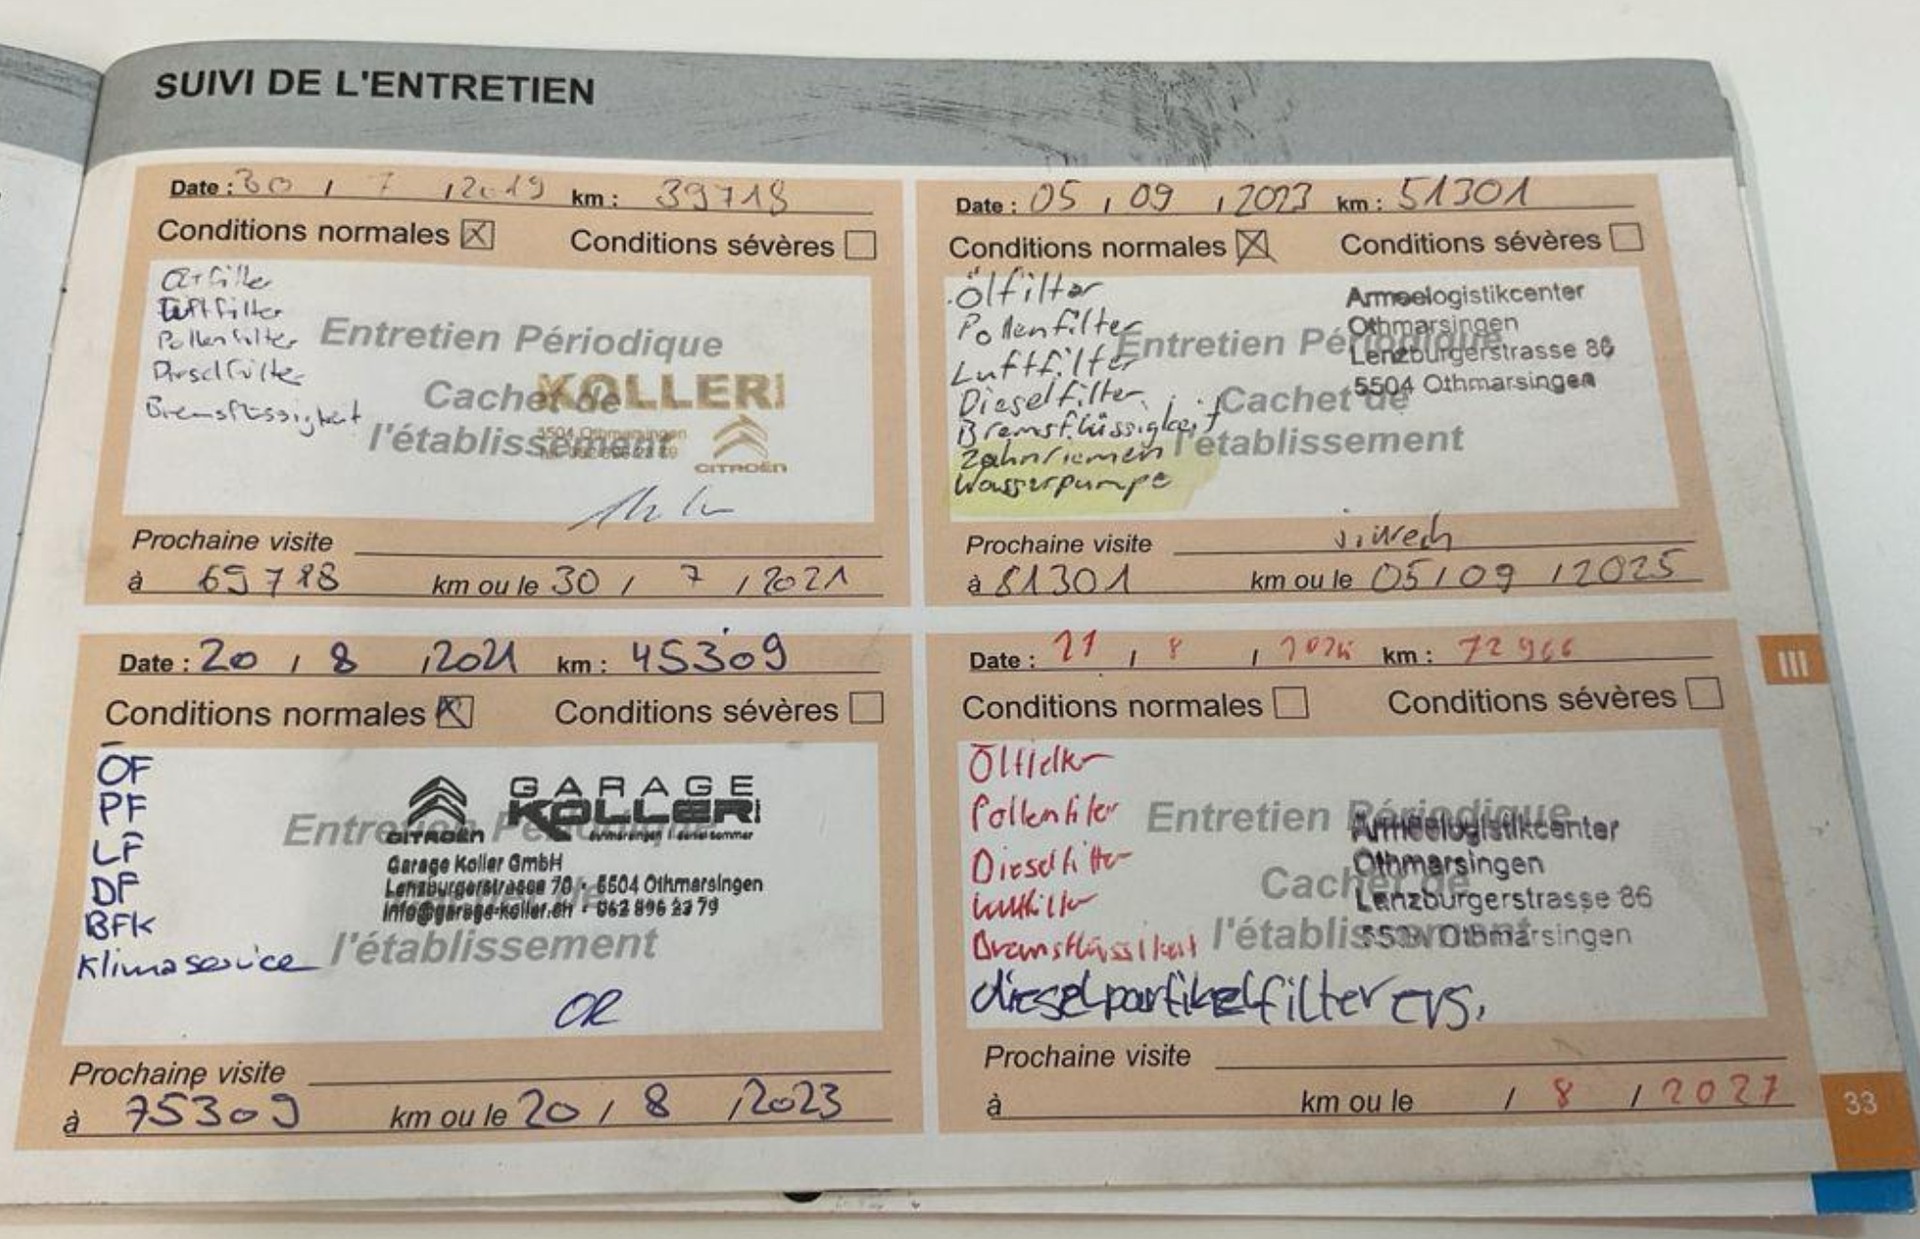 SUIVI DE L'ENTRETIEN
Date : 30 / 7 / 2019 km : 39718
Conditions normales ☒ Conditions sévères ☐
Ölfilter
Luftfilter
Pollenfilter
Dieselfilter
Bremsflüssigkeit
Entretien Périodique
Cachet de
l'établissement
KOLLER
5504 Othmarsingen
CITROËN
Prochaine visite
à 69718 km ou le 30 / 7 / 2021
Date : 05 / 09 / 2023 km : 51301
Conditions normales ☒ Conditions sévères ☐
Ölfilter
Pollenfilter
Luftfilter
Dieselfilter
Bremsflüssigkeit
Zahnriemen
Wasserpumpe
Entretien Périodique
Cachet de
l'établissement
Armeelogistikcenter
Othmarsingen
Lenzburgerstrasse 86
5504 Othmarsingen
Prochaine visite
à 81301 km ou le 05 / 09 / 2025
Date : 20 / 8 / 2021 km : 45309
Conditions normales ☒ Conditions sévères ☐
ÖF
PF
LF
DF
BFK
Klimaservice
Entretien Périodique
l'établissement
CITROËN
GARAGE
KOLLER
Garage Koller GmbH
Lenzburgerstrasse 70 · 5504 Othmarsingen
info@garage-koller.ch · 062 896 23 79
OR
Prochaine visite
à 75309 km ou le 20 / 8 / 2023
Date : 21 / 8 / 2024 km : 72966
Conditions normales ☐ Conditions sévères ☐
Pollenfilter
Dieselfilter
Luftfilter
Bremsflüssikeit
dieselpartikelfilter ers.
Entretien Périodique
Cachet de
l'établissement
Armeelogistikcenter
Othmarsingen
Lenzburgerstrasse 86
5504 Othmarsingen
Prochaine visite
à km ou le / 8 / 2027
III
33